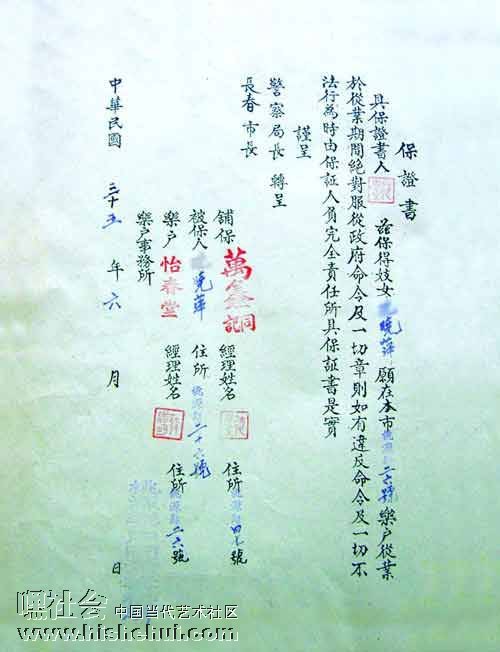 保證書
具保證書人 茲保得妓女 曉萍 願在本市桃源路二六號樂户從業
於從業期間絕對服從政府命令及一切章則如有違反命令及一切不
法行為時由保証人負完全責任所具保証書是實
謹呈
警察局長 轉呈
長春市長
舖保 萬鑫同記 經理姓名 住所 桃源路 號
被保人 曉萍 住所 桃源路二十六號
樂户 怡春堂 經理姓名 住所 桃源路二六號
樂户事務所
中華民國 三十五 年 六 月 日
嘿社会 中国当代艺术社区
www.hishehui.com